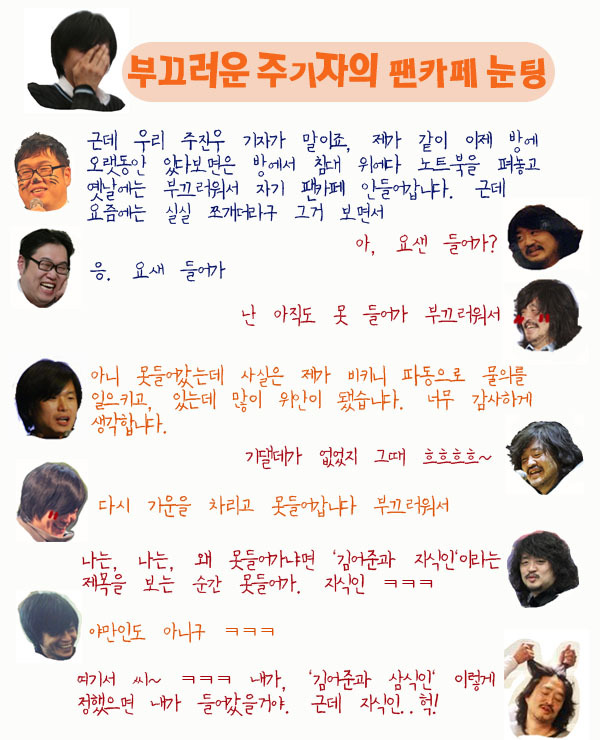 부끄러운 주기자의 팬카페 눈팅
근데 우리 주진우 기자가 말이죠, 제가 같이 이제 방에
오랫동안 있다보면은 방에서 침대 위에다 노트북을 펴놓고
옛날에는 부끄러워서 자기 팬카페 안들어갑니다. 근데
요즘에는 실실 쪼개더라구 그거 보면서
아, 요샌 들어가?
응. 요새 들어가
난 아직도 못 들어가 부끄러워서
아니 못들어갔는데 사실은 제가 비키니 파동으로 물의를
일으키고, 있는데 많이 위안이 됐습니다. 너무 감사하게
생각합니다.
기댈데가 없었지 그때 흐흐흐흐~
다시 기운을 차리고 못들어갑니다 부끄러워서
나는, 나는, 왜 못들어가냐면 '김어준과 지식인'이라는
제목을 보는 순간 못들어가. 지식인 ㅋㅋㅋ
야만인도 아니구 ㅋㅋㅋ
여기서 씨~ ㅋㅋㅋ 내가, '김어준과 삼식인' 이렇게
정했으면 내가 들어갔을거야. 근데 지식인..헉!